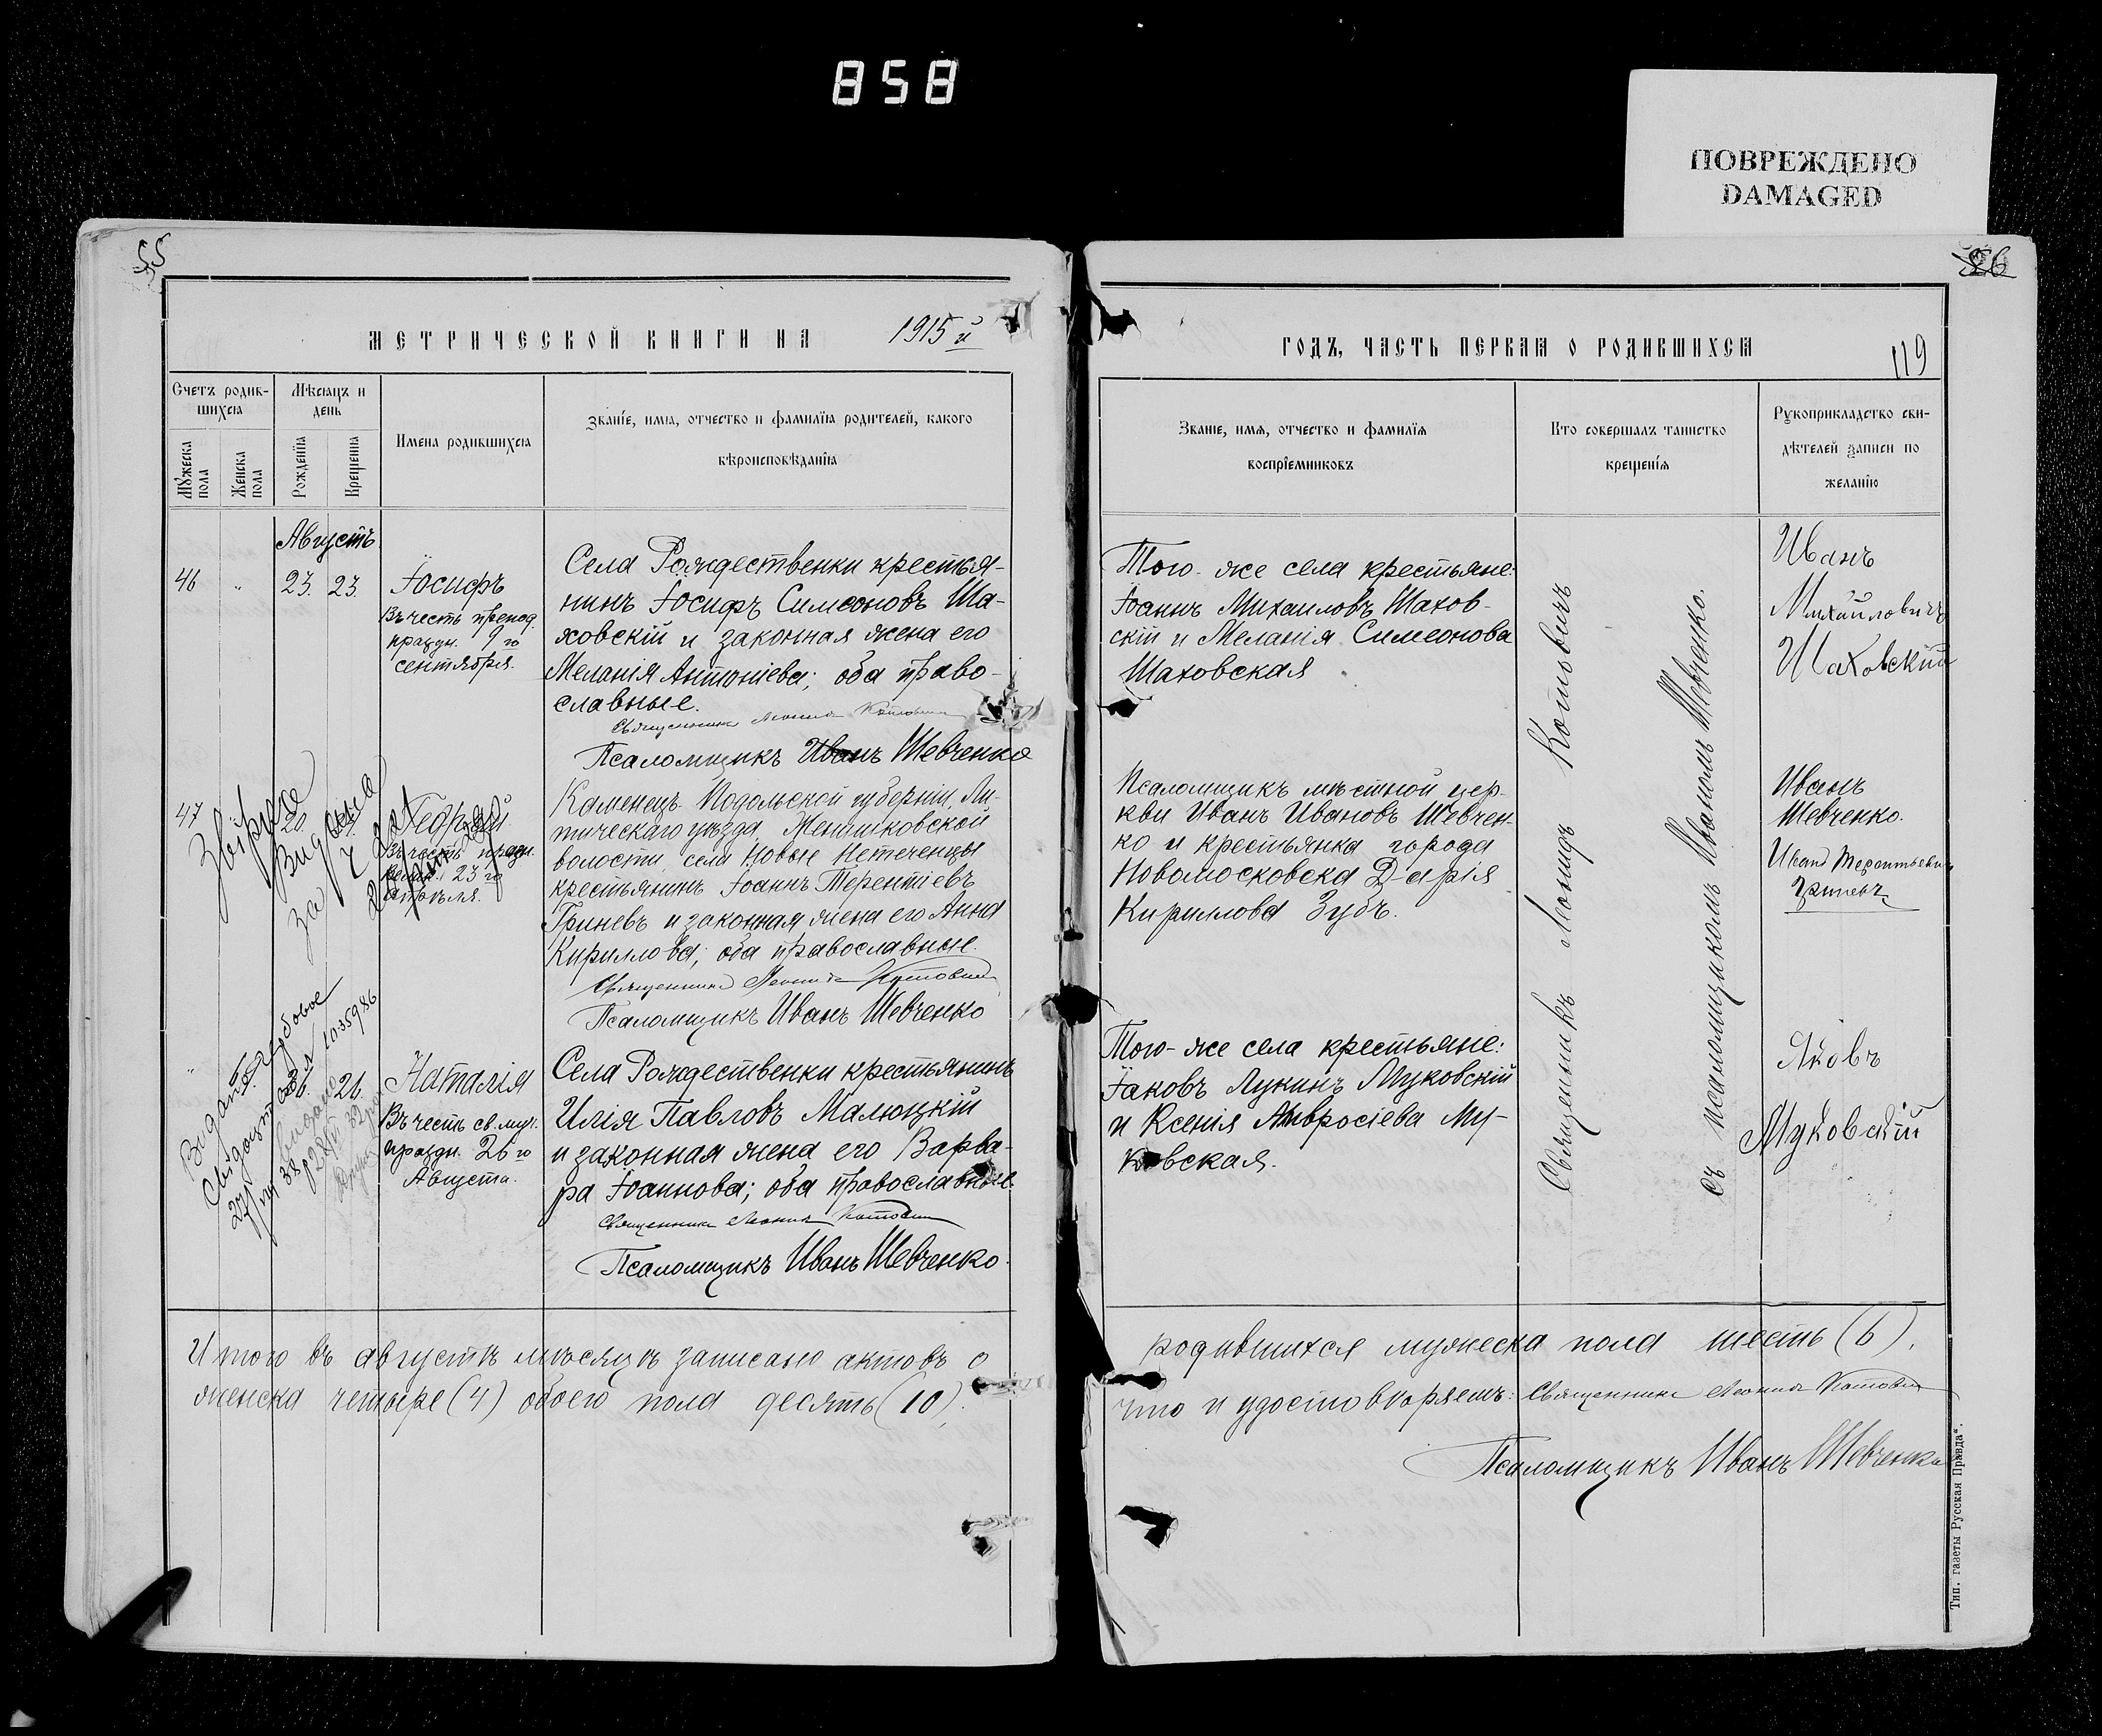 858
ПОВРЕЖДЕНО
DAMAGED
55
МЕТРИЧЕСКОЙ КНИГИ НА 1915 й
Счетъ родив-
шихся
Мѣсяцъ и
день
Мужеска
пола
Женска
пола
Рожденія
Крещенія
Имена родившихся
Званіе, имя, отчество и фамилія родителей, какого
вѣроисповѣданія
Августъ
46 " 23. 23.
Іосифъ
Въ честь препод.
праздн. 9 го
сентября.
Села Рождественки крестья-
нинъ Іосифъ Симеоновъ Ша-
ховскій и законная жена его
Меланія Антоніева; оба право-
славные.
Священникъ Леонидъ Котовичъ
Псаломщикъ Иванъ Шевченко
47
Георгій
Въ честь
23 го
апрѣля.
Каменецъ-Подольской губерніи, Ли-
тическаго уѣзда, Меньшковской
волости, села Новые Нетеченцы
крестьянинъ Іоаннъ Терентіевъ
Гриневъ и законная жена его Анна
Кириллова; оба православные.
Священникъ Леонидъ Котовичъ
Псаломщикъ Иванъ Шевченко
Звірене
Видана
за
" 26.
Наталія
Въ честь св. муч.
праздн. 26 го
Августа.
Села Рождественки крестьянинъ
Илія Павловъ Малюцкій
и законная жена его Варва-
ра Іоаннова; оба православные.
Священникъ Леонидъ Котовичъ
Псаломщикъ Иванъ Шевченко.
Видано
Итого въ августѣ мѣсяцѣ записано актовъ о
женска четыре (4) обоего пола десять (10),
26
ГОДЪ, ЧАСТЬ ПЕРВАЯ О РОДИВШИХСЯ
119
Званіе, имя, отчество и фамилія
воспріемниковъ
Кто совершалъ таинство
крещенія
Рукоприкладство сви-
дѣтелей записи по
желанію
Того-же села крестьяне:
Іоаннъ Михаиловъ Шахов-
скій и Меланія Симеонова
Шаховская
Иванъ
Михайловичъ
Шаховскій
Псаломщикъ мѣстной цер-
кви Иванъ Ивановъ Шевчен-
ко и крестьянка города
Новомосковска Дарія
Кириллова Зубъ.
Иванъ
Шевченко.
Иванъ Терентьевичъ
Гриневъ
Того-же села крестьяне:
Іаковъ Лукинъ Муковскій
и Ксенія Амвросіева Му-
ковская.
Яковъ
Муковскій
Священникъ Леонидъ Котовичъ
съ псаломщикомъ Иваномъ Шевченко.
родившихся мужеска пола шесть (6),
что и удостовѣряемъ: Священникъ Леонидъ Котовичъ
Псаломщикъ Иванъ Шевченко
Тип. газеты Русская Правда".